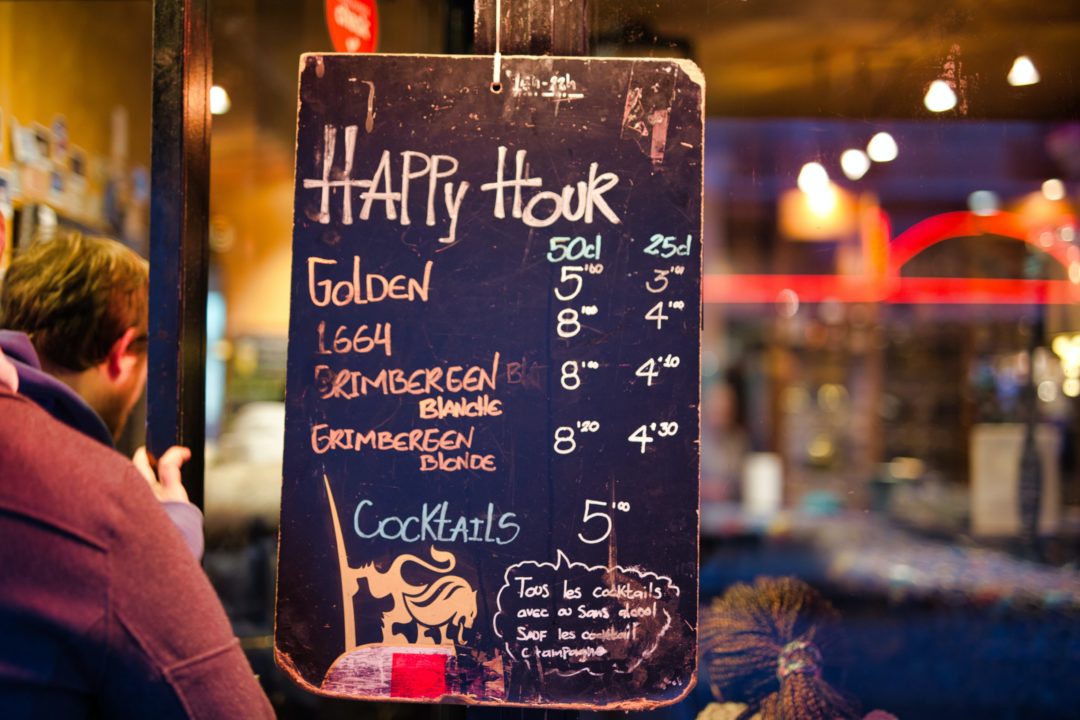 16h-22h
HAPPy HOUR
50cl 25cl
GOLDEN 5'00 3'00
1664 8'00 4'00
GRIMBERGEN 8'00 4'10
BLANCHE
GRIMBERGEN 8'20 4'30
BLONDE
COCKTAILS 5'00
Tous les cocktails
avec ou sans alcool
SAUF les cocktail
Champagne